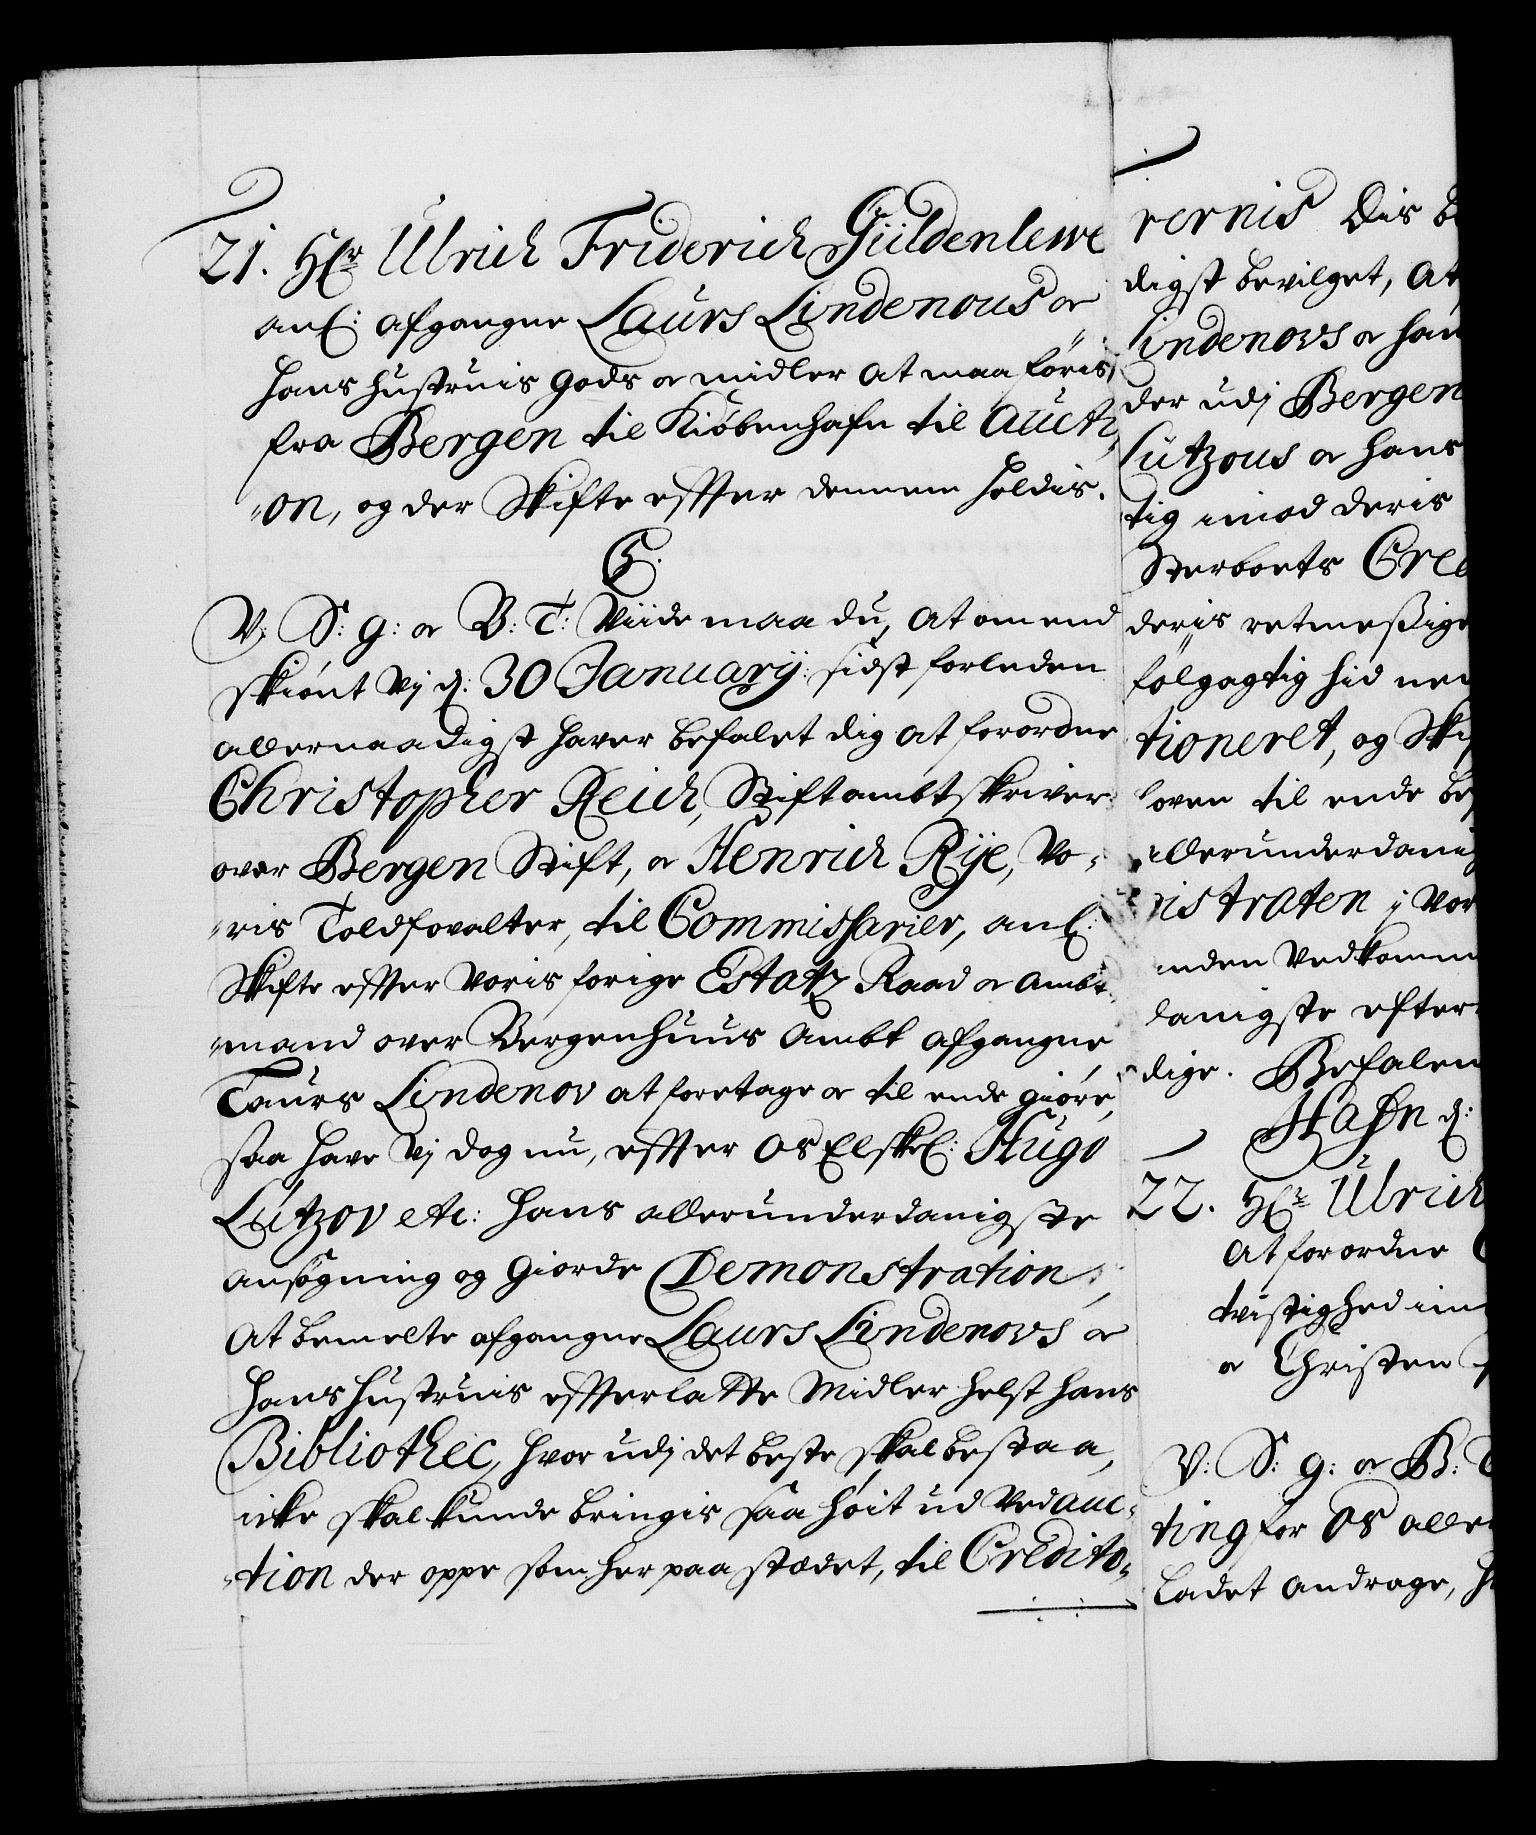 21. H(er)r Ulrich Friderich Güldenlewe
anl: afgangne Laurs Lindenous oc
hans hustruis Gods oc midler at maa föris
fra Bergen til Kiöbenhafn til Aucti,,
,,on, og der Skifte effter dennem holdis.
C5.
V: S: G: oc B: T: Viide maa du, at omend
skiönt Vj d: 30 Januarij sidst forleden
allernaadigst haver befalet dig at forordne
Christopher Reich, Stiftambtskriver
over Bergen Stift, oc Henrich Rÿe, Vo-
,,ris Toldfovalter, til Commissarier, anl:
Skifte effter Voris forige Estatz Raad oc Ambt,,
,,mand over Bergenhuus Ambt afgangne
Laurs Lindenov at foretage oc til ende giöre,
saa have Vj dog nu, effter Os Elskl: Hugo
Lützov etc: hans allerunderdanigste
ansögning og giorde Demonstration,
At bemelte afgangne Laurs Lindenovs oc
hans hustruis effterlatte Midler helst hans
Bibliothec, hvor udj det beste skal bestaa,
icke skal kunde bringis saa höit ud ved auc-
,,tion der oppe som her paa stædet, til Credito-
rernis
digst bevilget, At
Lindenovs oc han
der udj Bergen
Lützous oc hans
tig imod deris
Sterboets Cre
deris retmeßige
fölgagtig hid ned
tioneret, og Ski
loven til ende be
allerunderdanig
istraten i Vor
inden Vedkomm
danigste efter
dige. Befalen
Hafn d:
22. H(er)r Ulrich
At forordne
tvistighed im
oc Christen
V: S: G: oc B: T
ting for Os aller
ladet andrage, h